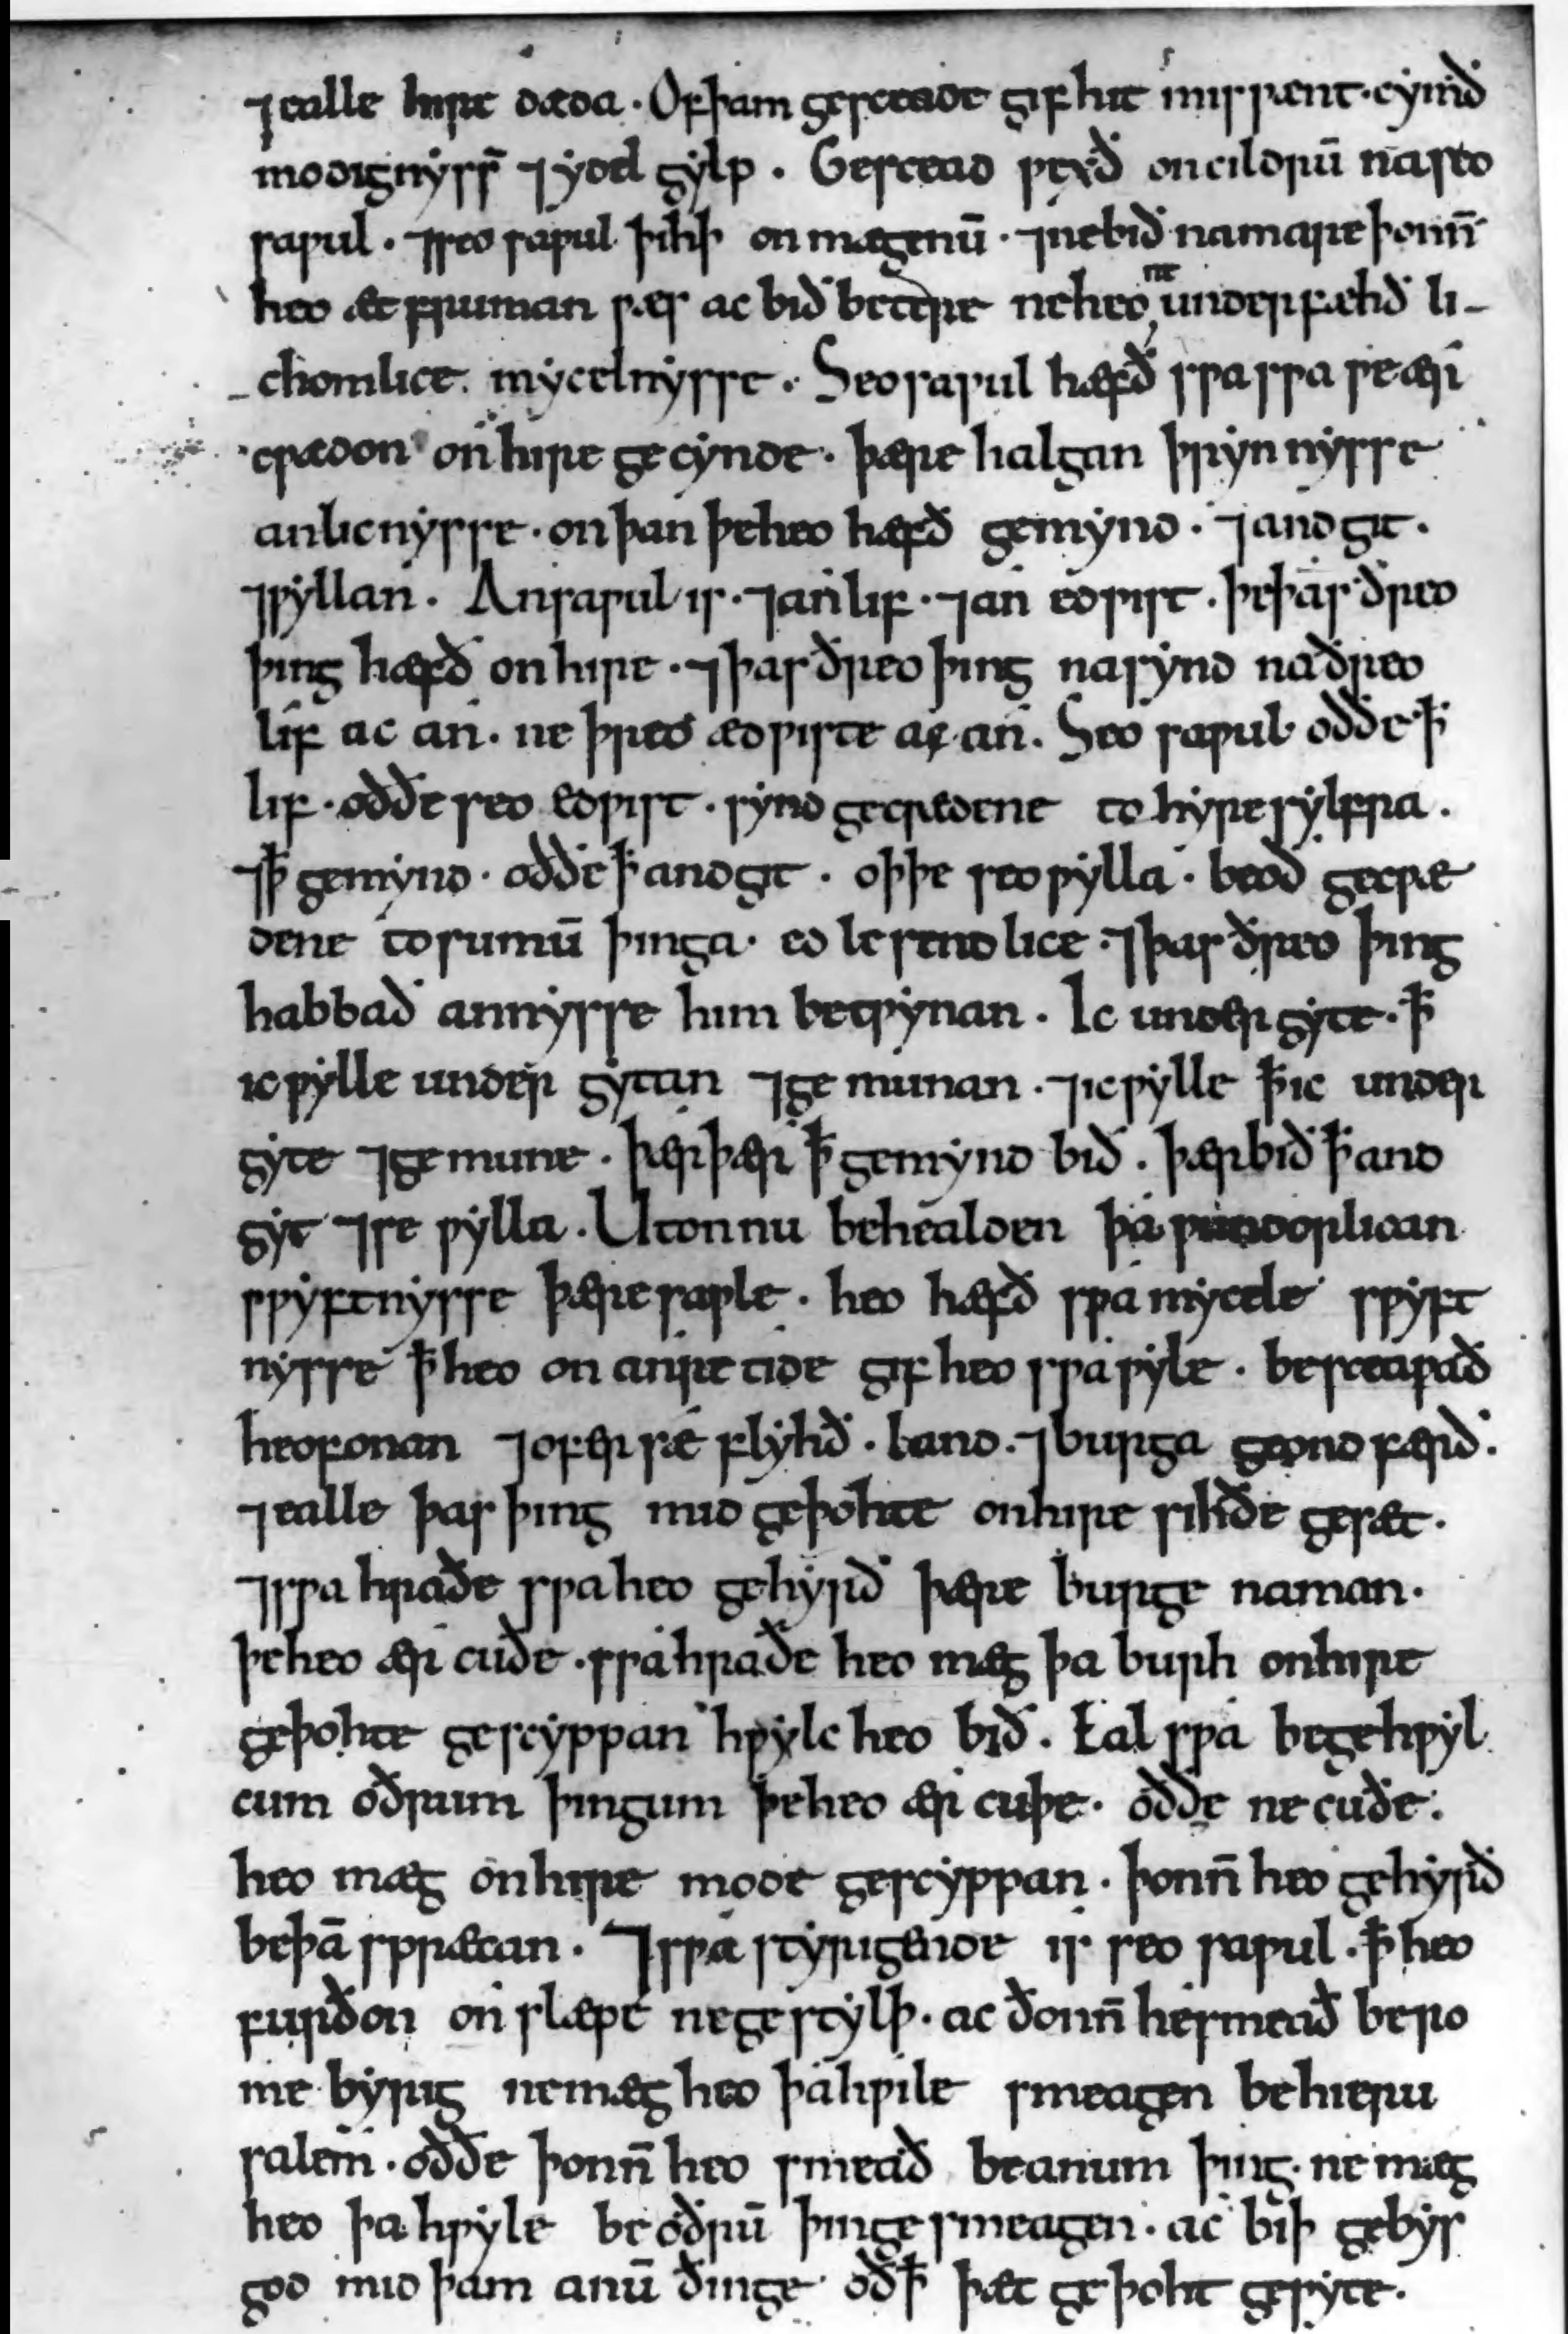 ⁊ealle hire dæda · Of þam gesceade gif hit miswent · cymð
modignyss̄ ⁊ydel gylp · Gescead wexð on cildrū na seo
sawul · ⁊seo sawul þihþ on mægenū · ⁊ne bið na mare þonn̄
heo æt fruman wæs ac bið betere ne heo ne underfæhð li-
chomlice mycelnysse · Seo sawul hæfð swa swa we ær
cwædon on hire gecynde · þære halgan þrynnysse
anlicnysse · on þan þe heo hæfð gemynd · ⁊andgit ·
⁊wyllan · An sawul is · ⁊an lif · ⁊an edwist · þe þas ðreo
þing hæfð on hire · ⁊þas ðreo þing na synd na ðreo
lif ac an · ne þreo ædwiste ac an · Seo sawul oððe ꝥ
lif · oððe seo edwist · synd gecwædene to hyre sylfra ·
⁊ꝥ gemynd · oððe ꝥ andgit · oþþe seo wylla · beoð gecwæ
dene to sumū þinga · ed lesendlice · ⁊þas ðreo þing
habbað annysse him betwynan · Ic undergyte · ꝥ
ic wylle undergytan ⁊gemunan · ⁊ic wylle ꝥ ic under
gyte ⁊gemune · þær þær ꝥ gemynd bið · þær bið ꝥ and
gyt ⁊se wylla · Uton nu behealden þa wundorlican
swyftnysse þære sawle · heo hæfð swa mycele swyft
nysse ꝥ heo on anre tide gif heo swa wyle · besceawað
heofonan ⁊ofer sæ flyhð · land · ⁊burga geond færð ·
⁊ealle þas þing mid geþohte on hire sihðe gesæt ·
⁊swa hraðe swa heo gehyrð þære burge naman ·
þe heo ær cuðe · swa hraðe heo mæg þa burh on hire
geþohte gescyppan hwylc heo bið · Eal swa be gehwyl
cum oðrum þingum þe heo ær cuþe · oððe ne cuðe ·
heo mæg on hire mode gescyppan · þonn̄ heo gehyrð
be þā sprǣcan · ⁊swa styrigende is seo sawul · ꝥ heo
furðon on slæpe ne gestylþ · ac ðonn̄ he smeað be ro
me byrig ne mæg heo þa hwile smeagen be hieru
salem̄ · oððe þonn̄ heo smeað be anum þing · ne mæg
heo þa hwyle be oðrū þinge smeagen · ac biþ gebys
god mid þam anū ðinge oðꝥ þæt geþoht gewyte ·